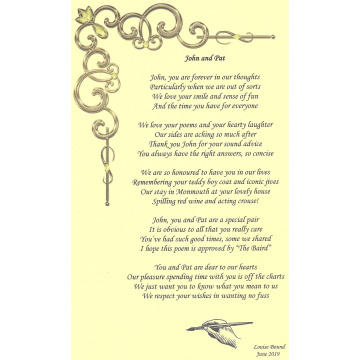 John and Pat
John, you are forever in our thoughts
Particularly when we are out of sorts
We love your smile and sense of fun
And the time you have for everyone
We love your poems and your hearty laughter
Our sides are aching so much after
Thank you John for your sound advice
You always have the right answers, so concise
We are so honoured to have you in our lives
Remembering your teddy boy coat and iconic jives
Our stay in Monmouth at your lovely house
Spilling red wine and acting crouse!
John, you and Pat are a special pair
It is obvious to all that you really care
You've had such good times, some we shared
I hope this poem is approved by "The Baird"
You and Pat are dear to our hearts
Our pleasure spending time with you is off the charts
We just want you to know what you mean to us
We respect your wishes in wanting no fuss
Louise Bound
June 2019